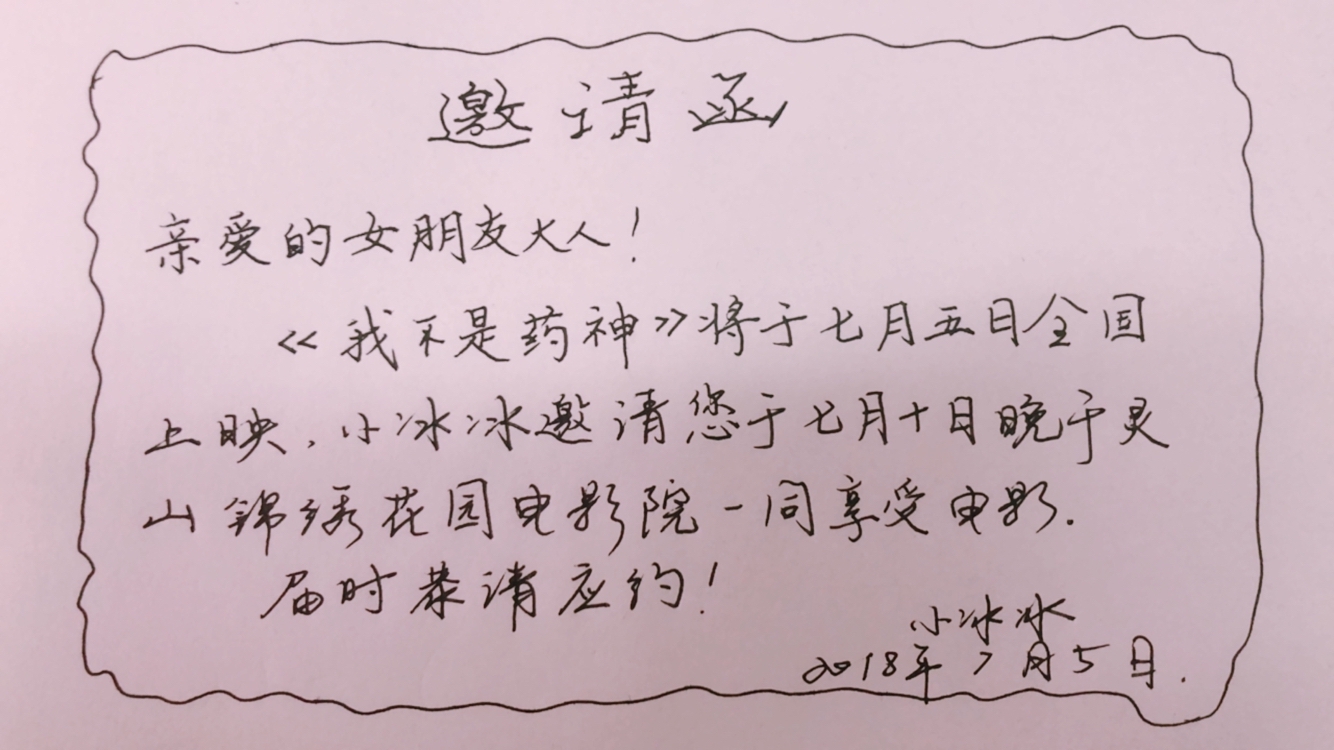 邀请函
亲爱的女朋友大人！
《我不是药神》将于七月五日全国
上映，小冰冰邀请您于七月十日晚于灵
山锦绣花园电影院一同享受电影.
届时恭请应约！
小冰冰
2018年7月5日.